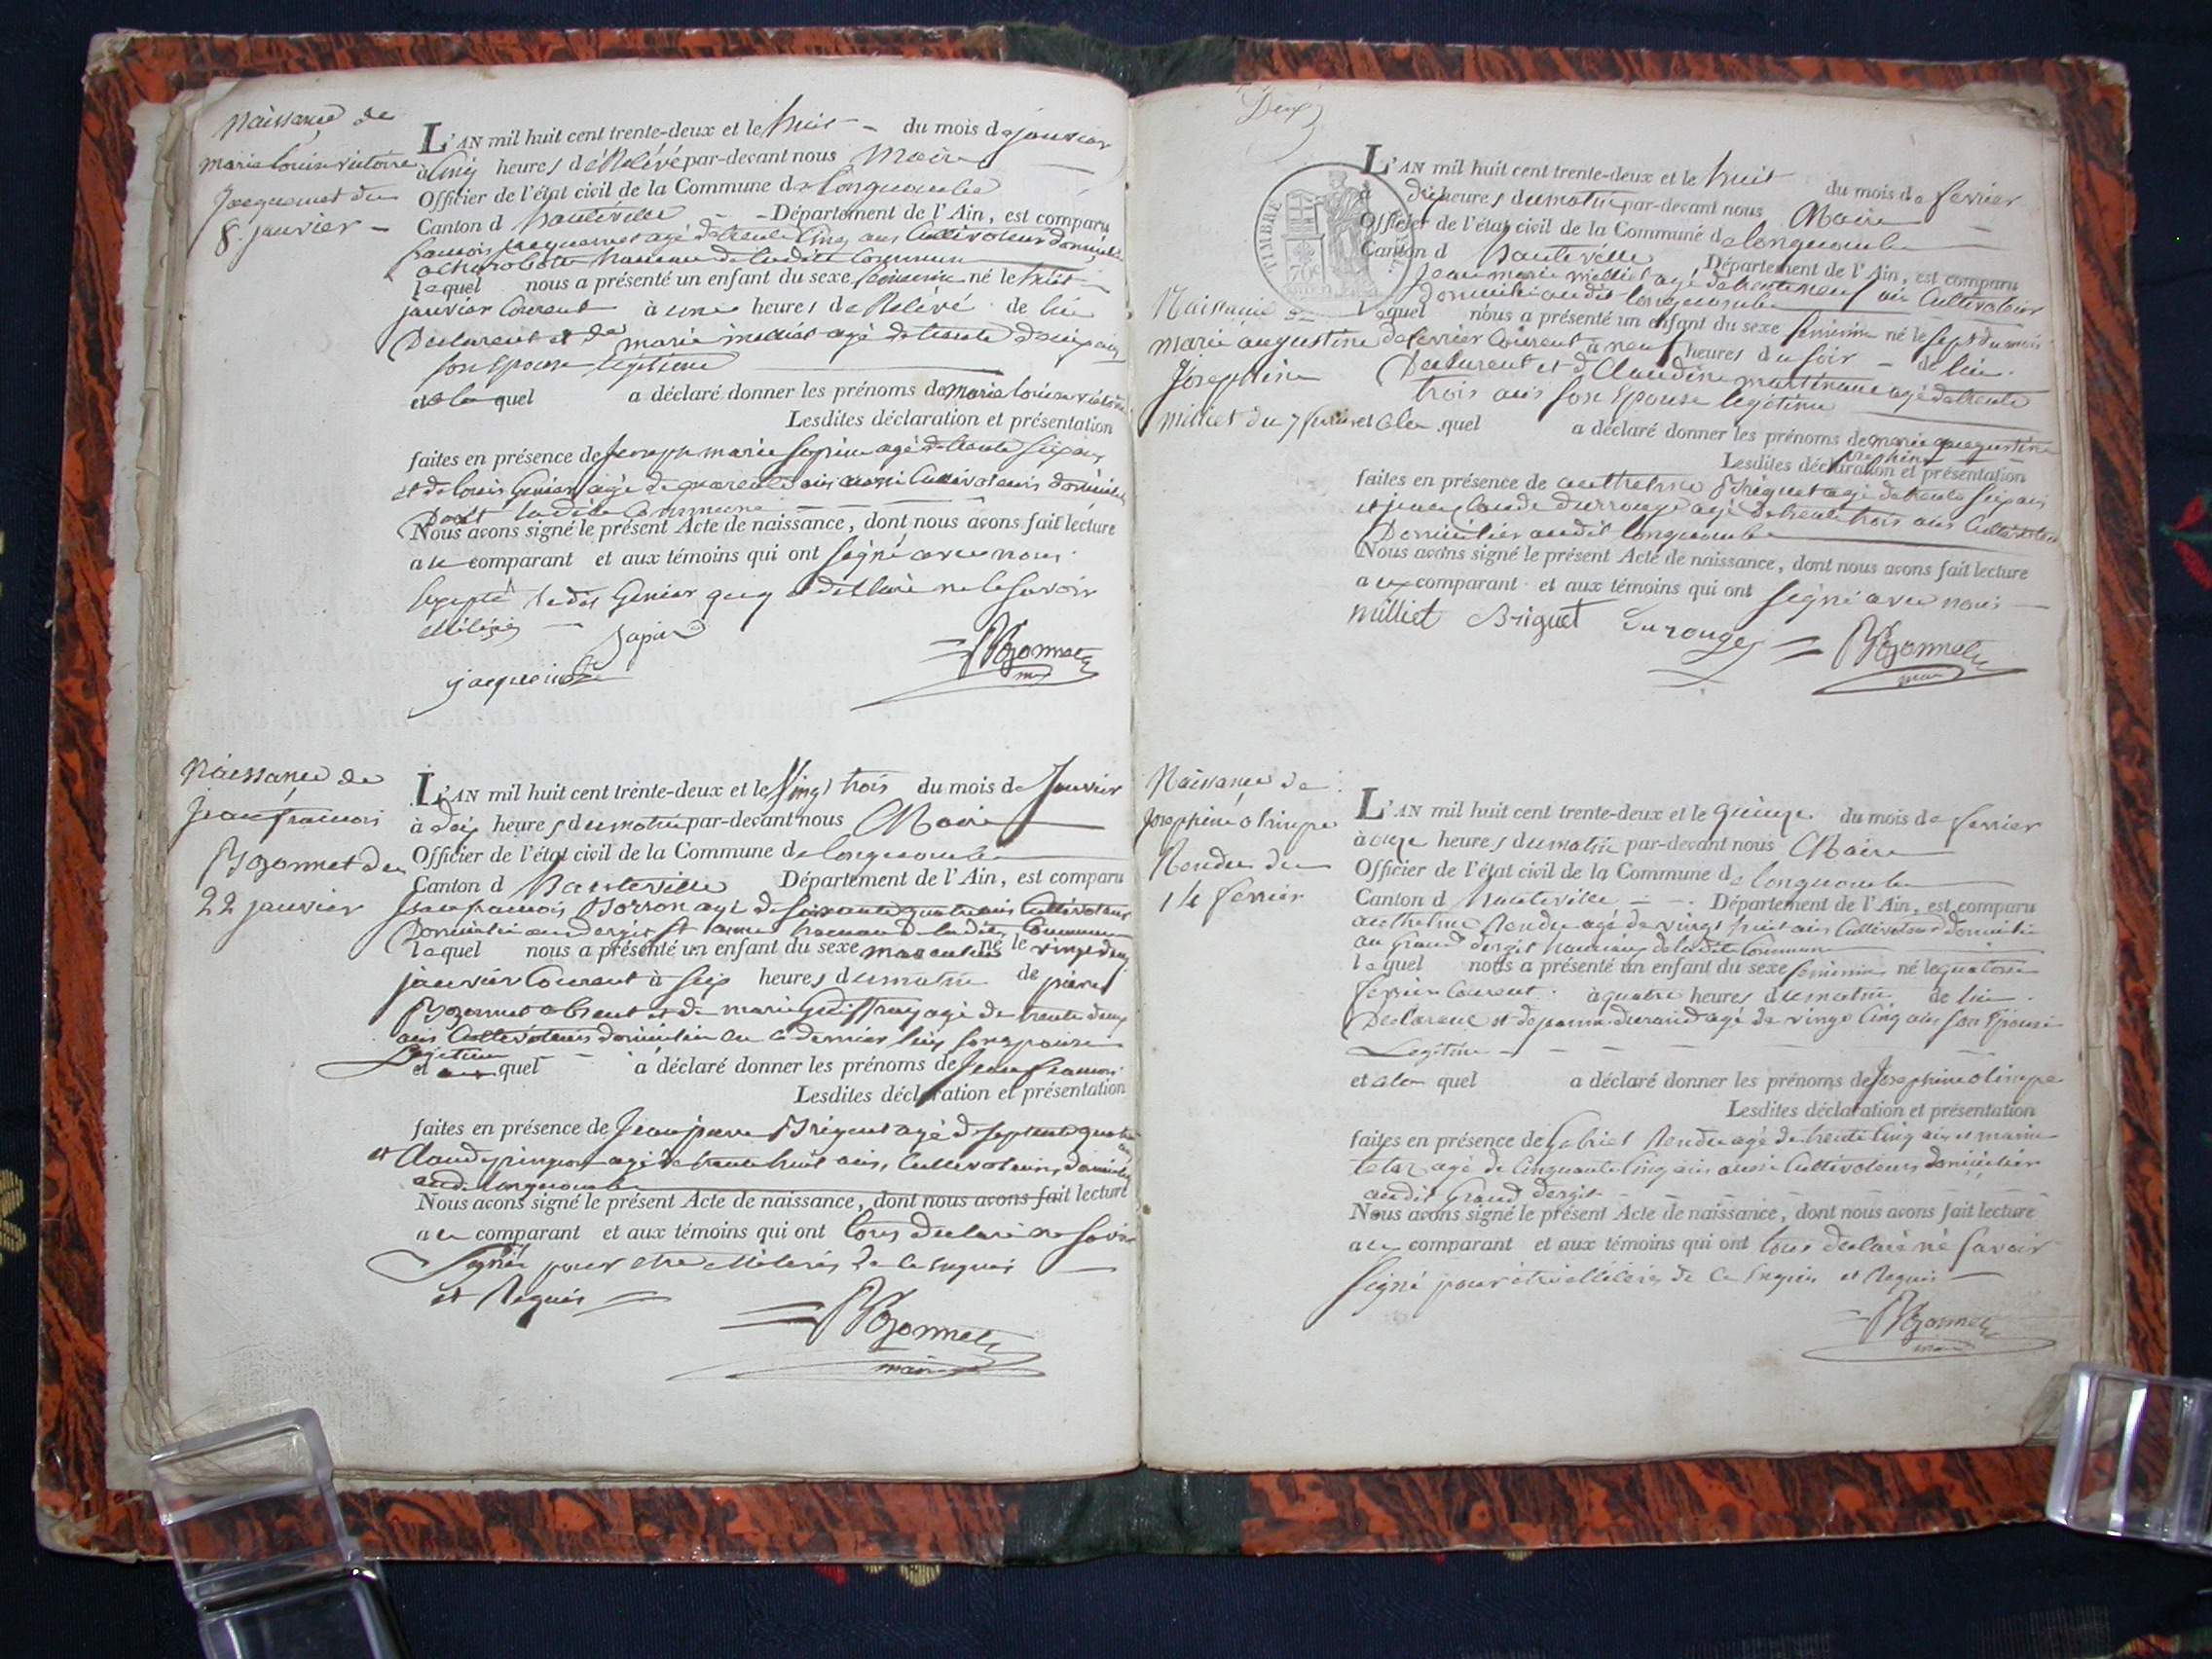 Naissance de
marie louise victoire
Jacquemet du
8. janvier
L'AN mil huit cent trente-deux et le huit du mois de janvier
à Cinq heures de Relévé par-devant nous Maire
Officier de l'état civil de la Commune de longecombe
Canton d hauteville Département de l'Ain, est comparu
francois jacquemet agé de trente Cinq ans Cultivateur domicilié
hameau de ladite Commune
lequel nous a présenté un enfant du sexe feminin né le huit
janvier Courent à une heures de Relévé de lui
Declarent et de marie milliet agé de trente deux ans
son Epouse légitime
et a la quel a déclaré donner les prénoms de marie louise victoire
Lesdites déclaration et présentation
faites en présence de Joseph marie Sapin agé de trente six ans
et de louis Genier agé de quarente ans aussi Cultivateurs domiciliés
ladite Commune
Nous avons signé le présent Acte de naissance, dont nous avons fait lecture
au comparant et aux témoins qui ont signé avec nous
Excepté ledit Genier qui a déclaré ne le savoir
Sapin
jacquemet
Bozonnet
Naissance de
Jean francois
Bozonnet du
22 janvier
L'AN mil huit cent trente-deux et le Vingt trois du mois de Janvier
à dix heures du matin par-devant nous Maire
Officier de l'état civil de la Commune de longecombe
Canton d hauteville Département de l'Ain, est comparu
Jean francois Borron agé de soixante quatre ans Cultivateur
Domicilié hameau de ladite Commune
lequel nous a présenté un enfant du sexe masculin né le vingt deux
janvier Courent à six heures du matin de pierre
Bozonnet absent et de marie Guiffray agé de trente deux
ans Cultivateurs domiciliés au dernier lieu son epouse
Legitime
et au quel à déclaré donner les prénoms de Jean francois
Lesdites déclaration et présentation
faites en présence de Jean pierre Briguet agé de septente quatre ans
et Claude pingeon agé de trente huit ans, Cultivateurs domiciliés
audit longecombe
Nous avons signé le présent Acte de naissance, dont nous avons fait lecture
au comparant et aux témoins qui ont tous declaré ne savoir
Signé pour être de ce enquis
et Requis
Bozonnet
maire
Deux
TIMBRE
70c
L'AN mil huit cent trente-deux et le huit du mois de fevrier
à dix heures du matin par-devant nous Maire
Officier de l'état civil de la Commune de longecombe
Canton d hauteville Département de l'Ain, est comparu
Jean marie milliet agé de trente neuf ans Cultivateur
Domicilié audit longecombe
Naissance de
marie augustine
Josephine
milliet du 7 fevrier
lequel nous a présenté un enfant du sexe feminin né le sept du mois
de fevrier Courent à neuf heures du soir de lui
Declarent et d Claudine martinand agé de trente
trois ans son Epouse legitime
et a la quel a déclaré donner les prénoms de marie augustine
josephine
Lesdites déclaration et présentation
faites en présence de anthelme Briguet agé de trente six ans
et jean claude durrouge agé de trente trois ans Cultivateurs
Domiciliés audit longecombe
Nous avons signé le présent Acte de naissance, dont nous avons fait lecture
aux comparant et aux témoins qui ont signé avec nous
milliet Briguet durouge Bozonnet
maire
Naissance de
Josephine olimpe
Rendu du
14 fevrier
L'AN mil huit cent trente-deux et le quinze du mois de fevrier
à onze heures du matin par-devant nous Maire
Officier de l'état civil de la Commune de longecombe
Canton d hauteville Département de l'Ain, est comparu
anthelme Rendu agé de vingt huit ans Cultivateur domicilié
au grand dergit hameau de ladite Commune
lequel nous a présenté un enfant du sexe feminin né le quatorze
fevrier Courent à quatre heures du matin de lui
Declarent et de jeanne durand agé de vingt Cinq ans son Epouse
Legitime
et a la quel a déclaré donner les prénoms de Josephine olimpe
Lesdites déclaration et présentation
faites en présence de Gabriel Rendu agé de trente Cinq ans et marin
tetaz agé de Cinquante Cinq ans aussi Cultivateurs domiciliés
audit Grand dergit
Nous avons signé le présent Acte de naissance, dont nous avons fait lecture
au comparant et aux témoins qui ont tous declaré né savoir
signé pour être de ce Enquis et Requis
Bozonnet
maire